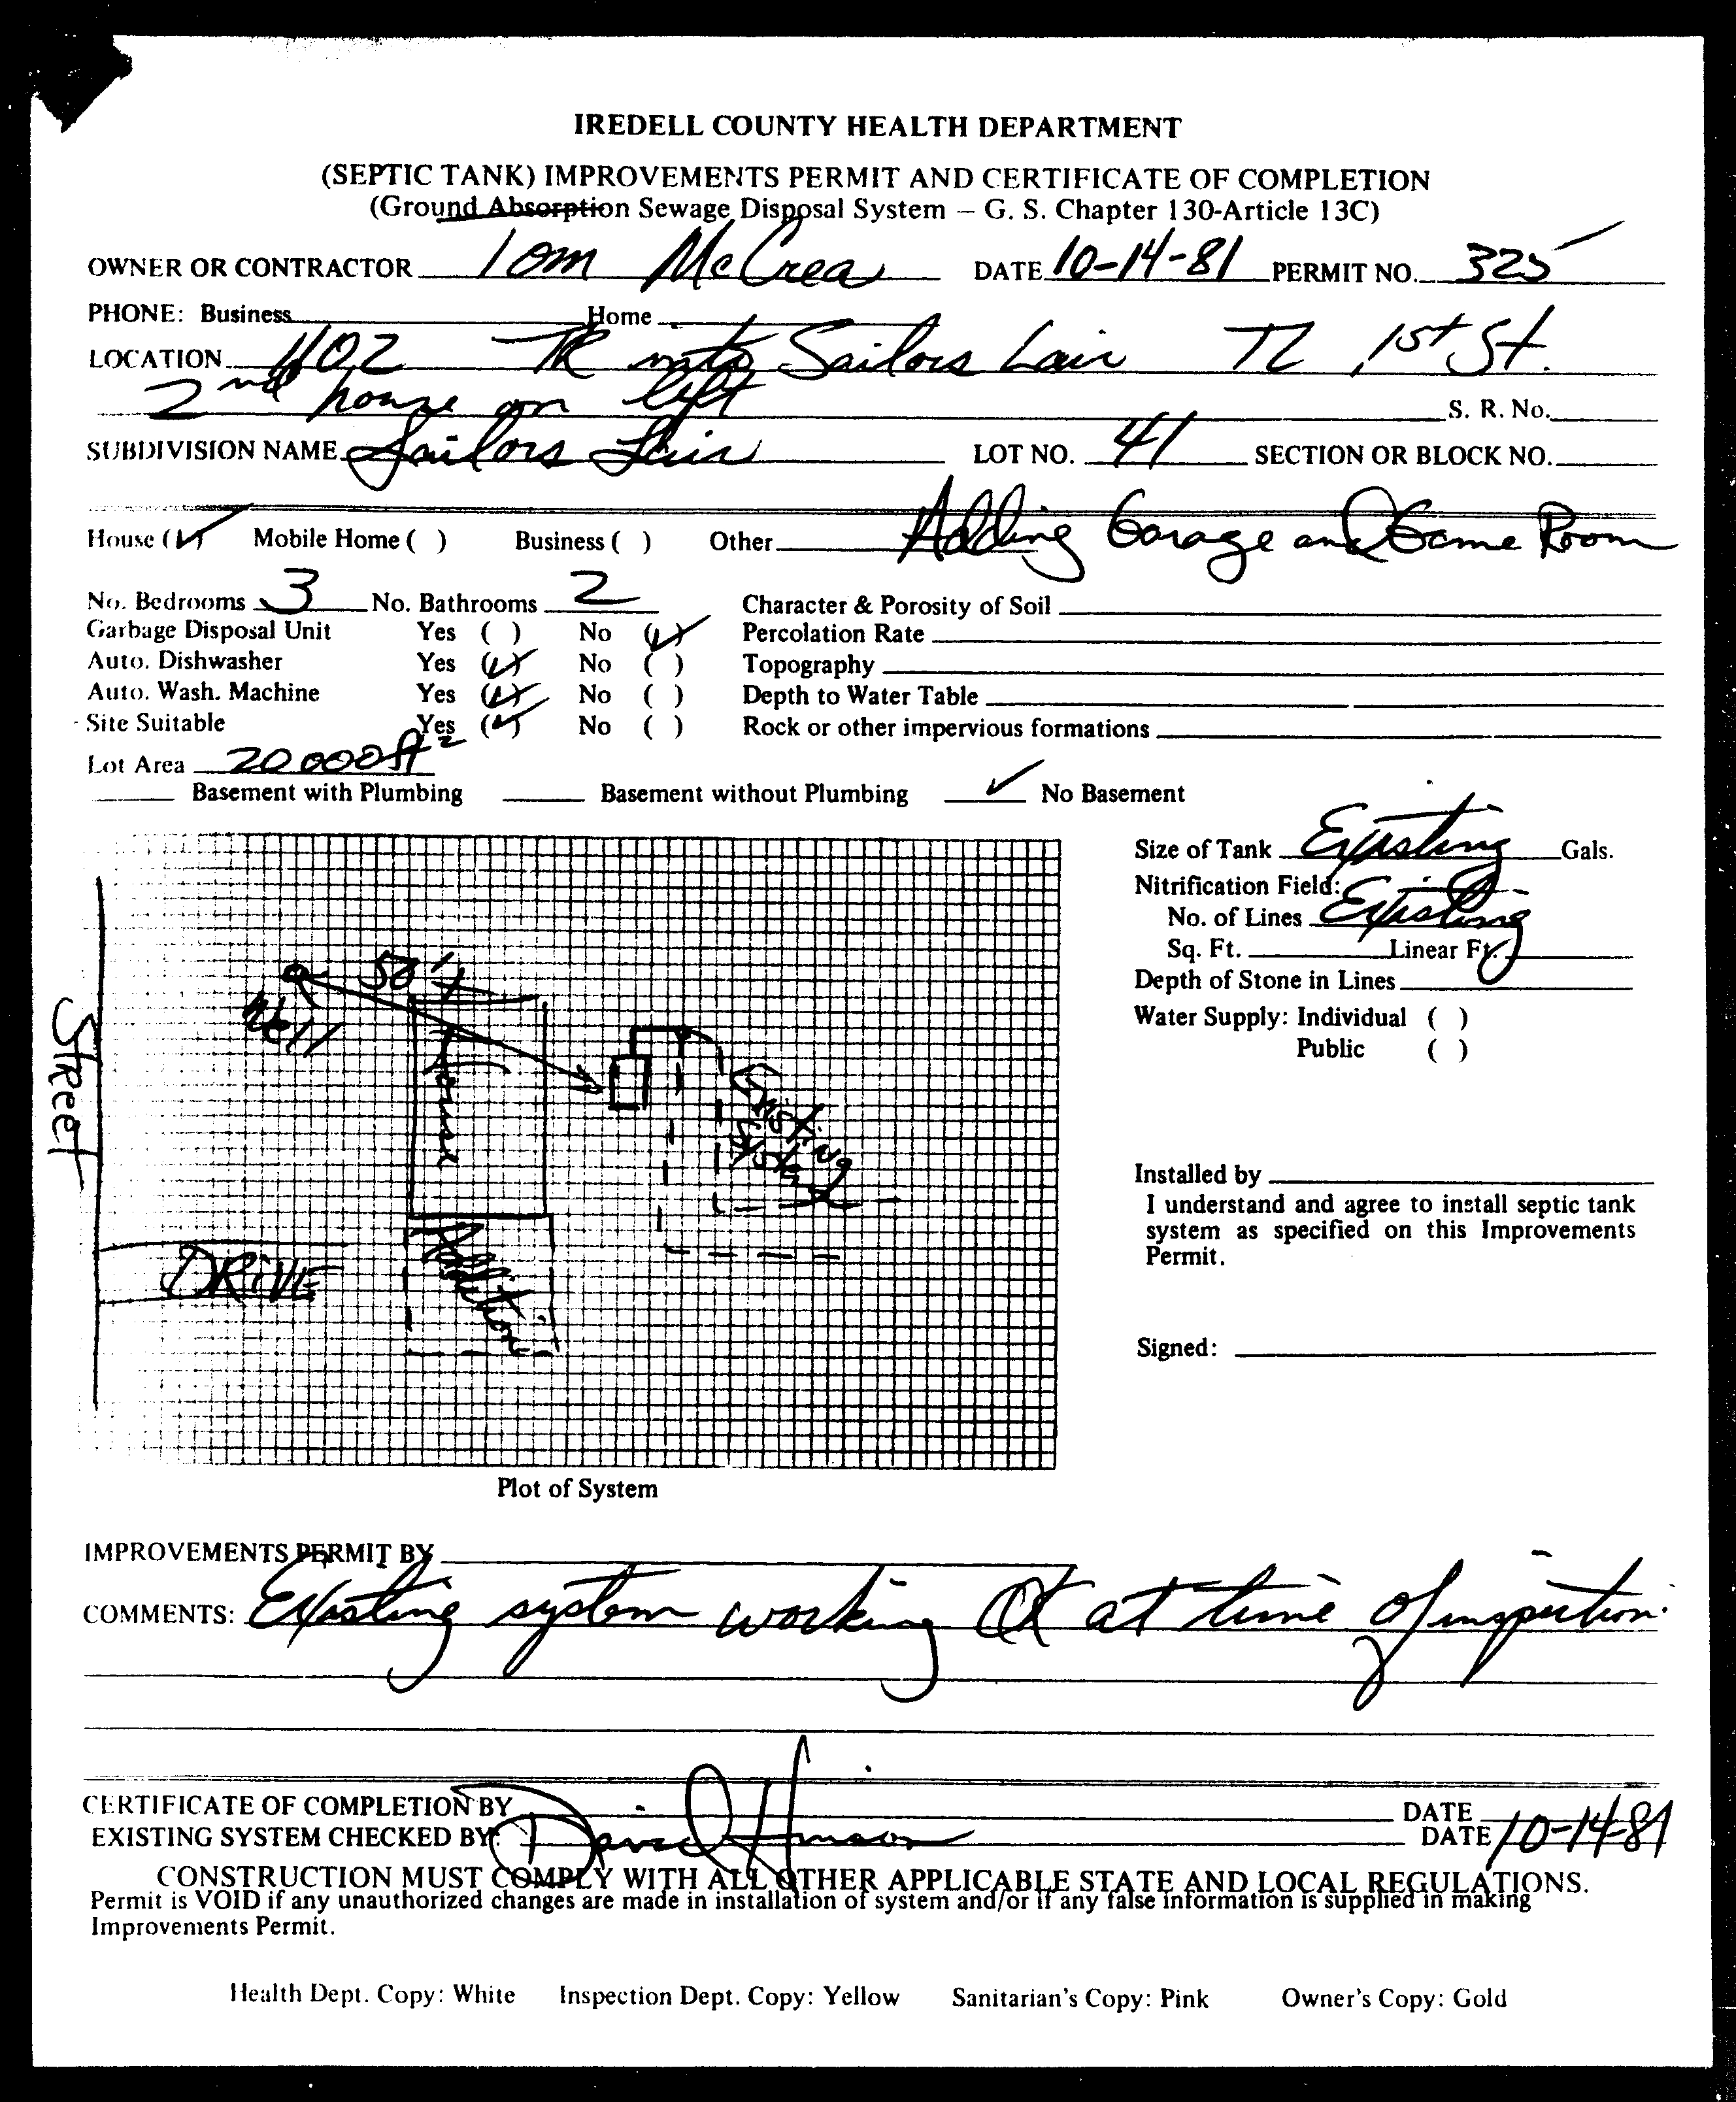 IREDELL COUNTY HEALTH DEPARTMENT
(SEPTIC TANK) IMPROVEMENTS PERMIT AND CERTIFICATE OF COMPLETION
(Ground Absorption Sewage Disposal System — G. S. Chapter 130-Article 13C)
OWNER OR CONTRACTOR Tom McCrea DATE 10-14-81 PERMIT NO. 325
PHONE: Business Home
LOCATION 1102 TR into Sailors Lair TL 1st St.
2nd house on left S. R. No.
SUBDIVISION NAME Sailors Lair LOT NO. 41 SECTION OR BLOCK NO.
House (✓) Mobile Home ( ) Business ( ) Other Adding Garage and Game Room
No. Bedrooms 3 No. Bathrooms 2 Character & Porosity of Soil
Garbage Disposal Unit Yes ( ) No (✓) Percolation Rate
Auto. Dishwasher Yes (✓) No ( ) Topography
Auto. Wash. Machine Yes (✓) No ( ) Depth to Water Table
Site Suitable Yes (✓) No ( ) Rock or other impervious formations
Lot Area 20000 ft²
Basement with Plumbing Basement without Plumbing ✓ No Basement
Size of Tank Existing Gals.
Nitrification Field:
No. of Lines Existing
Sq. Ft. Linear Ft.
Depth of Stone in Lines
Water Supply: Individual ( )
Public ( )
Installed by
I understand and agree to install septic tank
system as specified on this Improvements
Permit.
Signed:
Street
Well
50'+
House
Existing
System
DRIVE
Addition
Plot of System
IMPROVEMENTS PERMIT BY
COMMENTS: Existing system working OK at time of inspection.
CERTIFICATE OF COMPLETION BY DATE
EXISTING SYSTEM CHECKED BY: David Hinson DATE 10-14-81
CONSTRUCTION MUST COMPLY WITH ALL OTHER APPLICABLE STATE AND LOCAL REGULATIONS.
Permit is VOID if any unauthorized changes are made in installation of system and/or if any false information is supplied in making
Improvements Permit.
Health Dept. Copy: White Inspection Dept. Copy: Yellow Sanitarian's Copy: Pink Owner's Copy: Gold